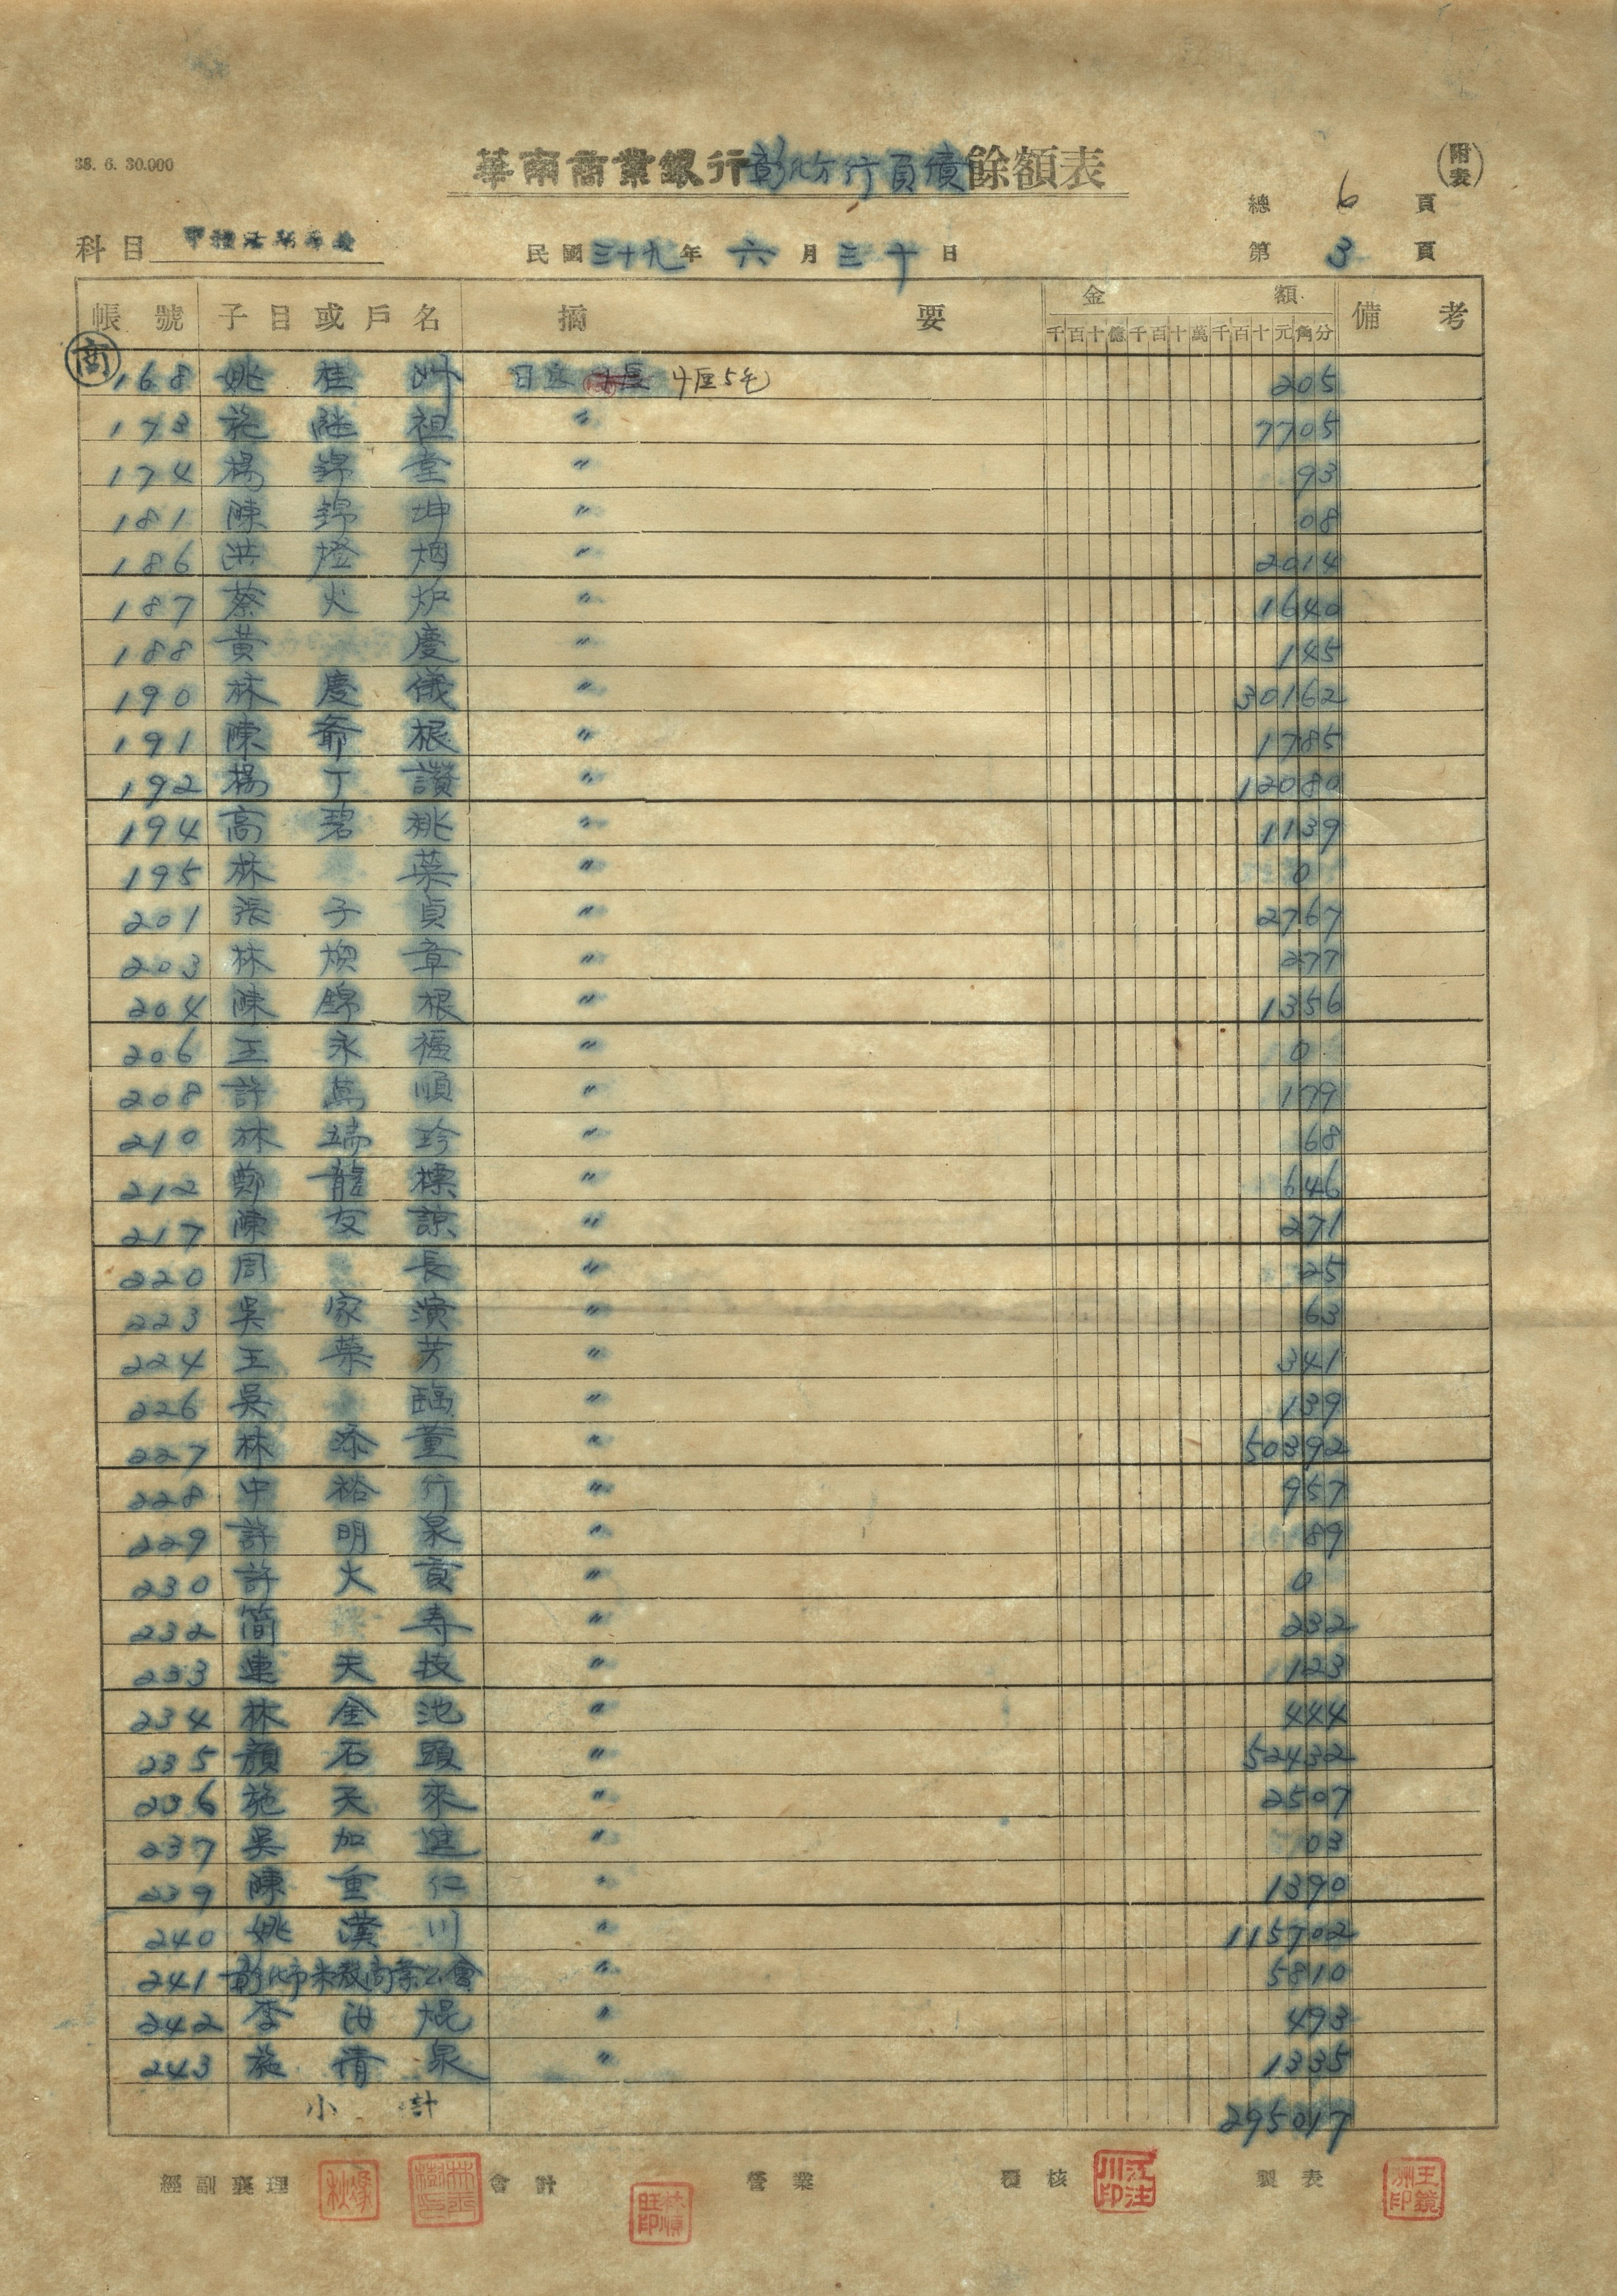 38. 6. 30.000
華南商業銀行彰化分行負債餘額表
附表
總 6 頁
科目 甲種活期存款
民國三十九年 六 月 三十 日
第 3 頁
帳號 子目或戶名 摘要 金額 備考
千百十億千百十萬千百十元角分
商
168 姚桂 日息 4厘5毛 205
173 施 祖 〃 7705
174 楊錦堂 〃 93
181 陳錦坤 〃 08
186 洪燈烟 〃 2014
187 蔡火炉 〃 1640
188 黃慶 〃 145
190 林慶儀 〃 30162
191 陳爺根 〃 1785
192 楊丁讚 〃 12080
194 高碧桃 〃 1139
195 林葉 〃 0
201 張子貞 〃 2767
203 林焕章 〃 277
204 陳錦根 〃 1356
206 王永福 〃 0
208 許萬順 〃 179
210 林瑞珍 〃 68
212 鄭龍標 〃 646
217 陳友諒 〃 271
220 周長 〃 25
223 吳家演 〃 63
224 王葉芳 〃 341
226 吳臨 〃 139
227 林添董 〃 50392
228 中裕行 〃 957
229 許明泉 〃 89
230 許火貢 〃 0
232 簡寿 〃 232
233 連天技 〃 123
234 林金池 〃 444
235 顏石頭 〃 52432
236 施天來 〃 2507
237 吳加 〃 03
239 陳重仁 〃 1390
240 姚漢川 〃 115702
241 彰化市米穀商業公會 〃 5810
242 李 焜 〃 493
243 施清泉 〃 1335
小計 295017
經副襄理 會計 營業 覆核 江注川印 製表 王鏡洲印